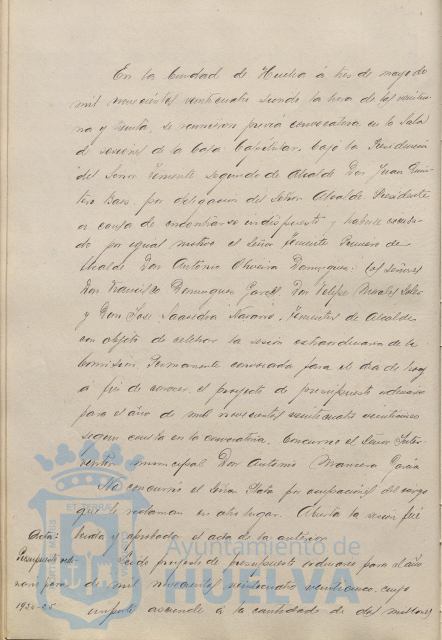 En la Ciudad de Huelva á tres de mayo de
mil novecientos veinticuatro siendo la hora de las veintiu-
na y treinta, se reunieron previa convocatoria en la Sala
de sesiones de la Casa Capitular, bajo la Presidencia
del Señor Teniente segundo de Alcalde Don Juan Quin-
tero Baez por delegacion del Señor Alcalde Presidente
a causa de encontrarse indispuesto y haberse excusa-
do por igual motivo el Señor Teniente Primero de
Alcalde Don Antonio Oliveira Dominguez: los señores
Don Francisco Dominguez Garcés, Don Felipe Morales
y Don José Saavedra Navarro, Tenientes de Alcalde
con objeto de celebrar la sesión extraordinaria de la
Comisión Permanente convocada para el dia de hoy
á fin de conocer el proyecto de presupuesto ordinario
para el año de mil novecientos veinticuatro veinticinco
segun consta en la convocatoria. Concurre el Señor Inter-
ventor municipal Don Antonio Mancera
No concurrió el Señor por ocupaciones del cargo
que le reclaman en otro lugar. Abierta la sesión fué
Acta: leida y aprobada el acta de la anterior
Presupuesto ordi- Leido proyecto de presupuesto ordinario para el año
nario para de mil novecientos veinticuatro veinticinco, cuyo
1924-25 importe asciende á la cantidad de dos millones
Ayuntamiento de
HUELVA